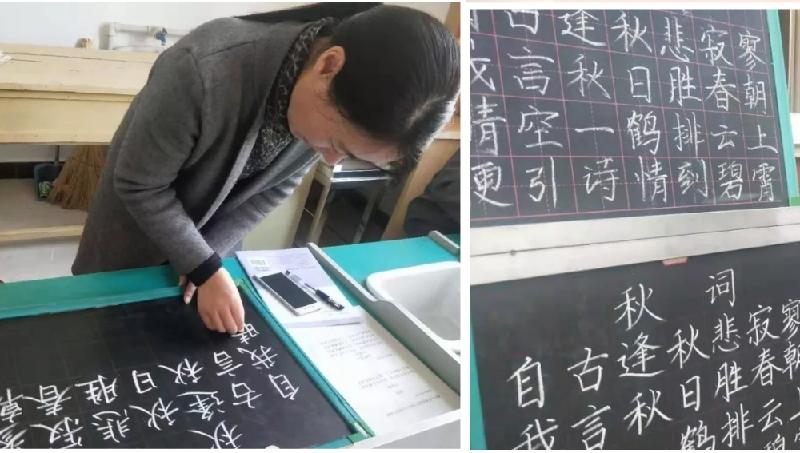 秋
自古逢秋悲寂
我言秋日胜春朝
古逢秋悲寂寥
我言秋日胜春朝
空一鹤排云上
引诗情到碧霄
秋词
自古逢秋悲寂寥
我言秋日胜春朝
鹤排云
碧